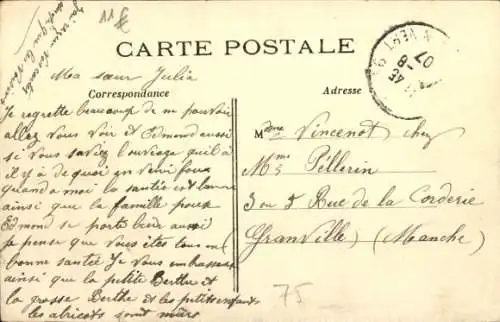 11 €
J'ai reçu
CARTE POSTALE
Ma sœur Julia
Correspondance
Adresse
07
Je regrette beaucoup de ne pouvoir
allez vous voir et Edmond aussi
si vous saviez l'ouvrage qu'il à
il y à de quoi en venir foux
quand a moi la santée est bonne
ainsi que la famille pour
Edmond se porte bien aussi
je pense que vous êtes tous en
bonne santée Je vous embrasse
ainsi que la petite Berthe et
la grosse Berthe et les petits enfants
les abricots sont mûrs
Mme Vincenot chez
Mme Péllerin
3 ou 5 Rue de la Corderie
Granville (Manche)
75